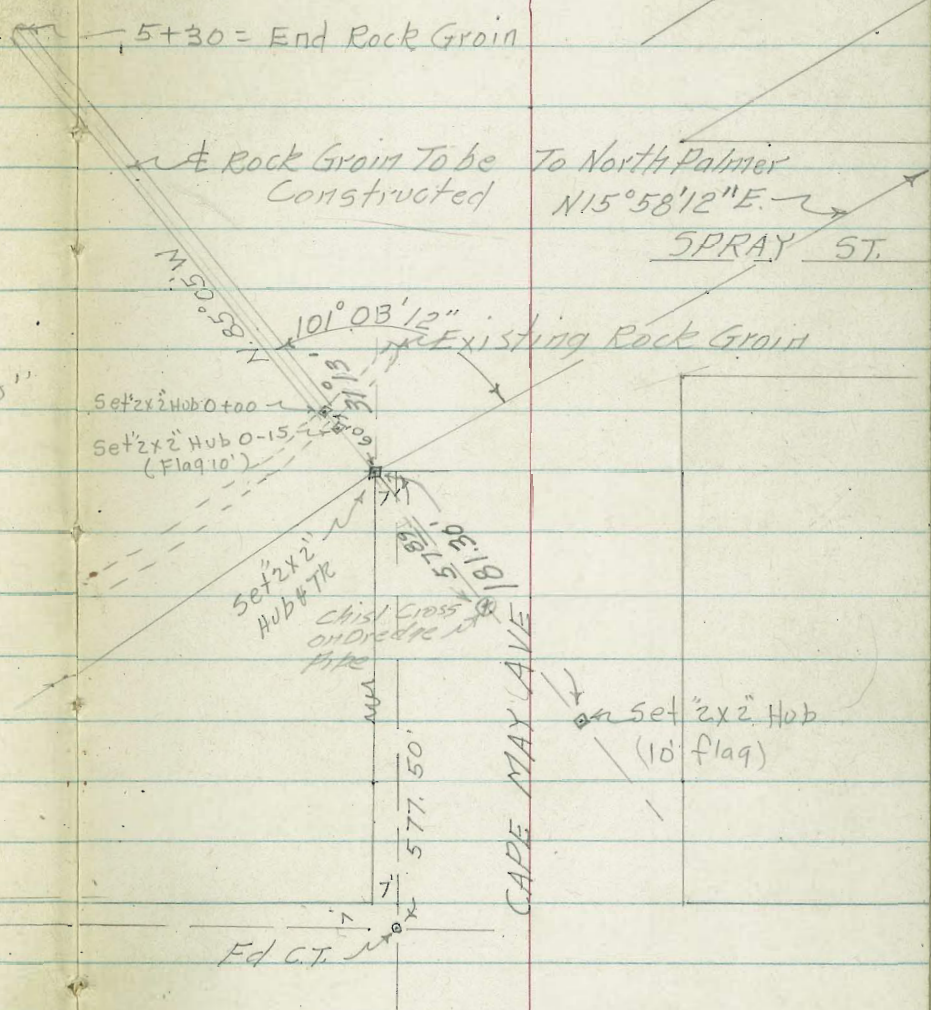 5+30 = End Rock Groin
℄ Rock Groin To be
Constructed
To North Palmer
N15°58'12"E.
SPRAY ST.
N. 85°05'W
101°03'12"
Existing Rock Groin
Set 2"x2" Hub 0+00
Set 2"x2" Hub 0-15
(Flag 10')
60'
7'
Set 2"x2"
Hub & TK
57.89
181.30'
Chisl Cross
on Dredge
Pipe
CAPE MAY AVE
Set 2"x2" Hub
(10' flag)
577.50'
7'
7'
Fd C.T.